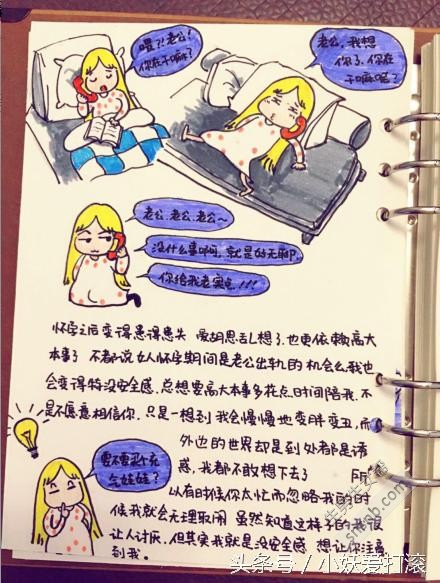 喂?!老公?
你在干嘛?
老公,我想
你了.你在
干嘛呢?
老公.老公.老公~
没什么事啊.就是好无聊.
你给我老实点!!!
怀孕之后变得患得患失 爱胡思乱想了.也更依赖高大
本事了 不都说女人怀孕期间是老公出轨的机会么.我也
会变得特没安全感.总想要高大本事多花点时间陪我.不
是不愿意相信你.只是一想到我会慢慢地变胖变丑.而
外边的世界却是到处都是诱
惑.我都不敢想下去了 所
以有时候你太忙而忽略我的时
候我就会无理取闹 虽然知道这样子的我很
让人讨厌.但其实我就是没安全感.想让你注意
到我.
要不要买个充
气娃娃?
头条号 / 小妖爱打滚